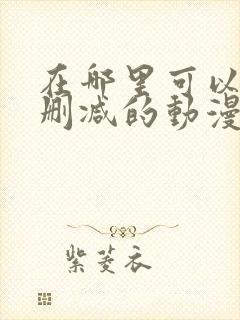 在哪里可以
删减的動漫
紫菱衣